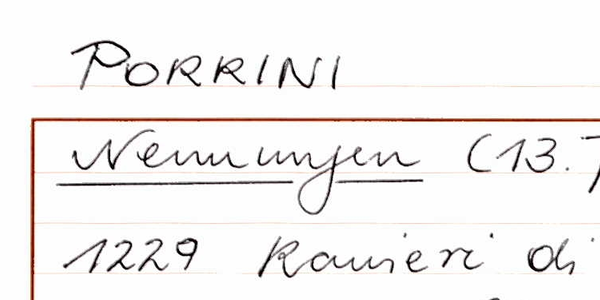 PORRINI
Nennungen (13.
1229 Ranieri di